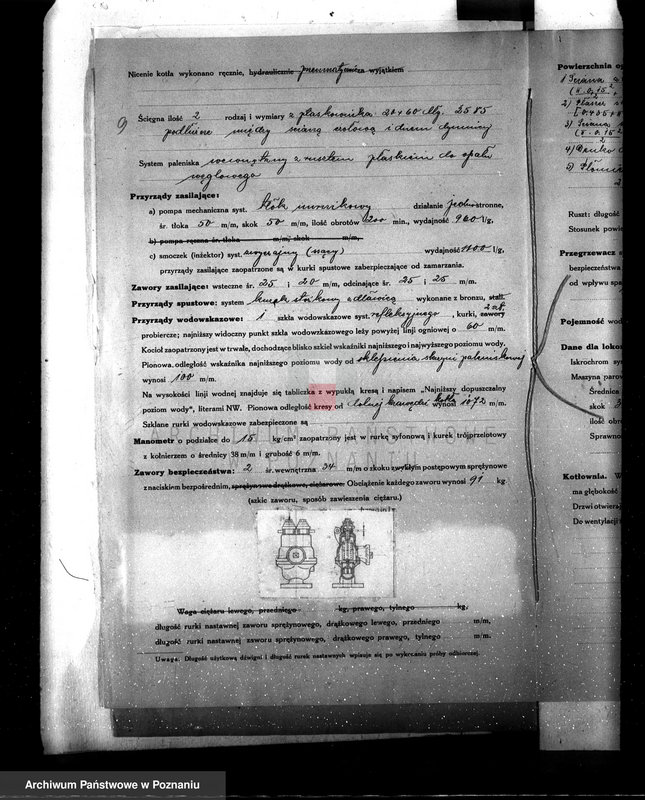 Nicenie kotła wykonano ręcznie, hydraulicznie pneumatycznie za wyjątkiem
9 Ścięgna ilość 2 rodzaj i wymiary z płaskownika 20 × 60 dłg. 2585
podłużne między ścianą sitową i dnem dymnicy
System paleniska wewnętrzny z rusztem płaskim do opału
węglowego
Przyrządy zasilające:
a) pompa mechaniczna syst. tłok nurnikowy działanie jednostronne,
śr. tłoka 50 m/m, skok 50 m/m, ilość obrotów 200 min., wydajność 960 l/g,
b) pompa ręczna śr. tłoka m/m, skok m/m,
c) smoczek (inżektor) syst. zwyczajny (ssący) wydajność 1100 l/g,
przyrządy zasilające zaopatrzone są w kurki spustowe zabezpieczające od zamarzania.
Zawory zasilające: wsteczne śr. 25 i 20 m/m, odcinające śr. 25 i 25 m/m.
Przyrządy spustowe: system kurek stożkowy z dławicą wykonane z bronzu, stali.
Przyrządy wodowskazowe: 1 szkła wodowskazowe syst. refleksyjnego, kurki, zawory 2 szt.
probiercze; najniższy widoczny punkt szkła wodowskazowego leży powyżej linji ogniowej o 60 m/m.
Kocioł zaopatrzony jest w trwałe, dochodzące blisko szkieł wskaźniki najniższego i najwyższego poziomu wody.
Pionowa odległość wskaźnika najniższego poziomu wody od sklepienia skrzyni paleniskowej
wynosi 100 m/m.
Na wysokości linji wodnej znajduje się tabliczka z wypukłą kresą i napisem „Najniższy dopuszczalny
poziom wody", literami NW. Pionowa odległość kresy od dolnej krawędzi kotła wynosi 1072 m/m.
Szklane rurki wodowskazowe zabezpieczone są
ARCHIWUM PAŃSTWOWE
W POZNANIU
Manometr o podziałce do 15 kg/cm² zaopatrzony jest w rurkę syfonową i kurek trójprzelotowy
z kołnierzem o średnicy 38 m/m i grubość 6 m/m.
Zawory bezpieczeństwa: 2 śr. wewnętrzna 34 m/m o skoku zwykłym postępowym sprężynowe
z naciskiem bezpośrednim, sprężynowe drążkowe, ciężarowe. Obciążenie każdego zaworu wynosi 91 kg.
(szkic zaworu, sposób zawieszenia ciężaru.)
Waga ciężaru lewego, przedniego kg, prawego, tylnego kg,
długość rurki nastawnej zaworu sprężynowego, drążkowego lewego, przedniego m/m.
długość rurki nastawnej zaworu sprężynowego, drążkowego prawego, tylnego m/m.
Uwaga: Długość użytkową dźwigni i długość rurek nastawnych wpisuje się po wykonaniu próby odbiorczej.
Powierzchnia og
1) Ściana
2)
3) Ściana
4)
5)
Ruszt: długość
Stosunek powie
Przegrzewacz
bezpieczeństwa
od wpływu spa
Pojemność wod
Dane dla loko
Ilokrochrom syst
Maszyna parow
Średnica
skok 3
ilość obro
Sprawno
Kotłownia. W
ma głębokość
Drzwi otwiera
Do wentylacji
Archiwum Państwowe w Poznaniu